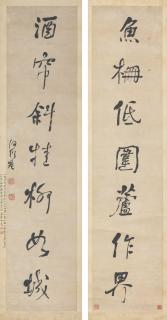 魚柵低圍蘆作界
酒帘斜挂柳如城